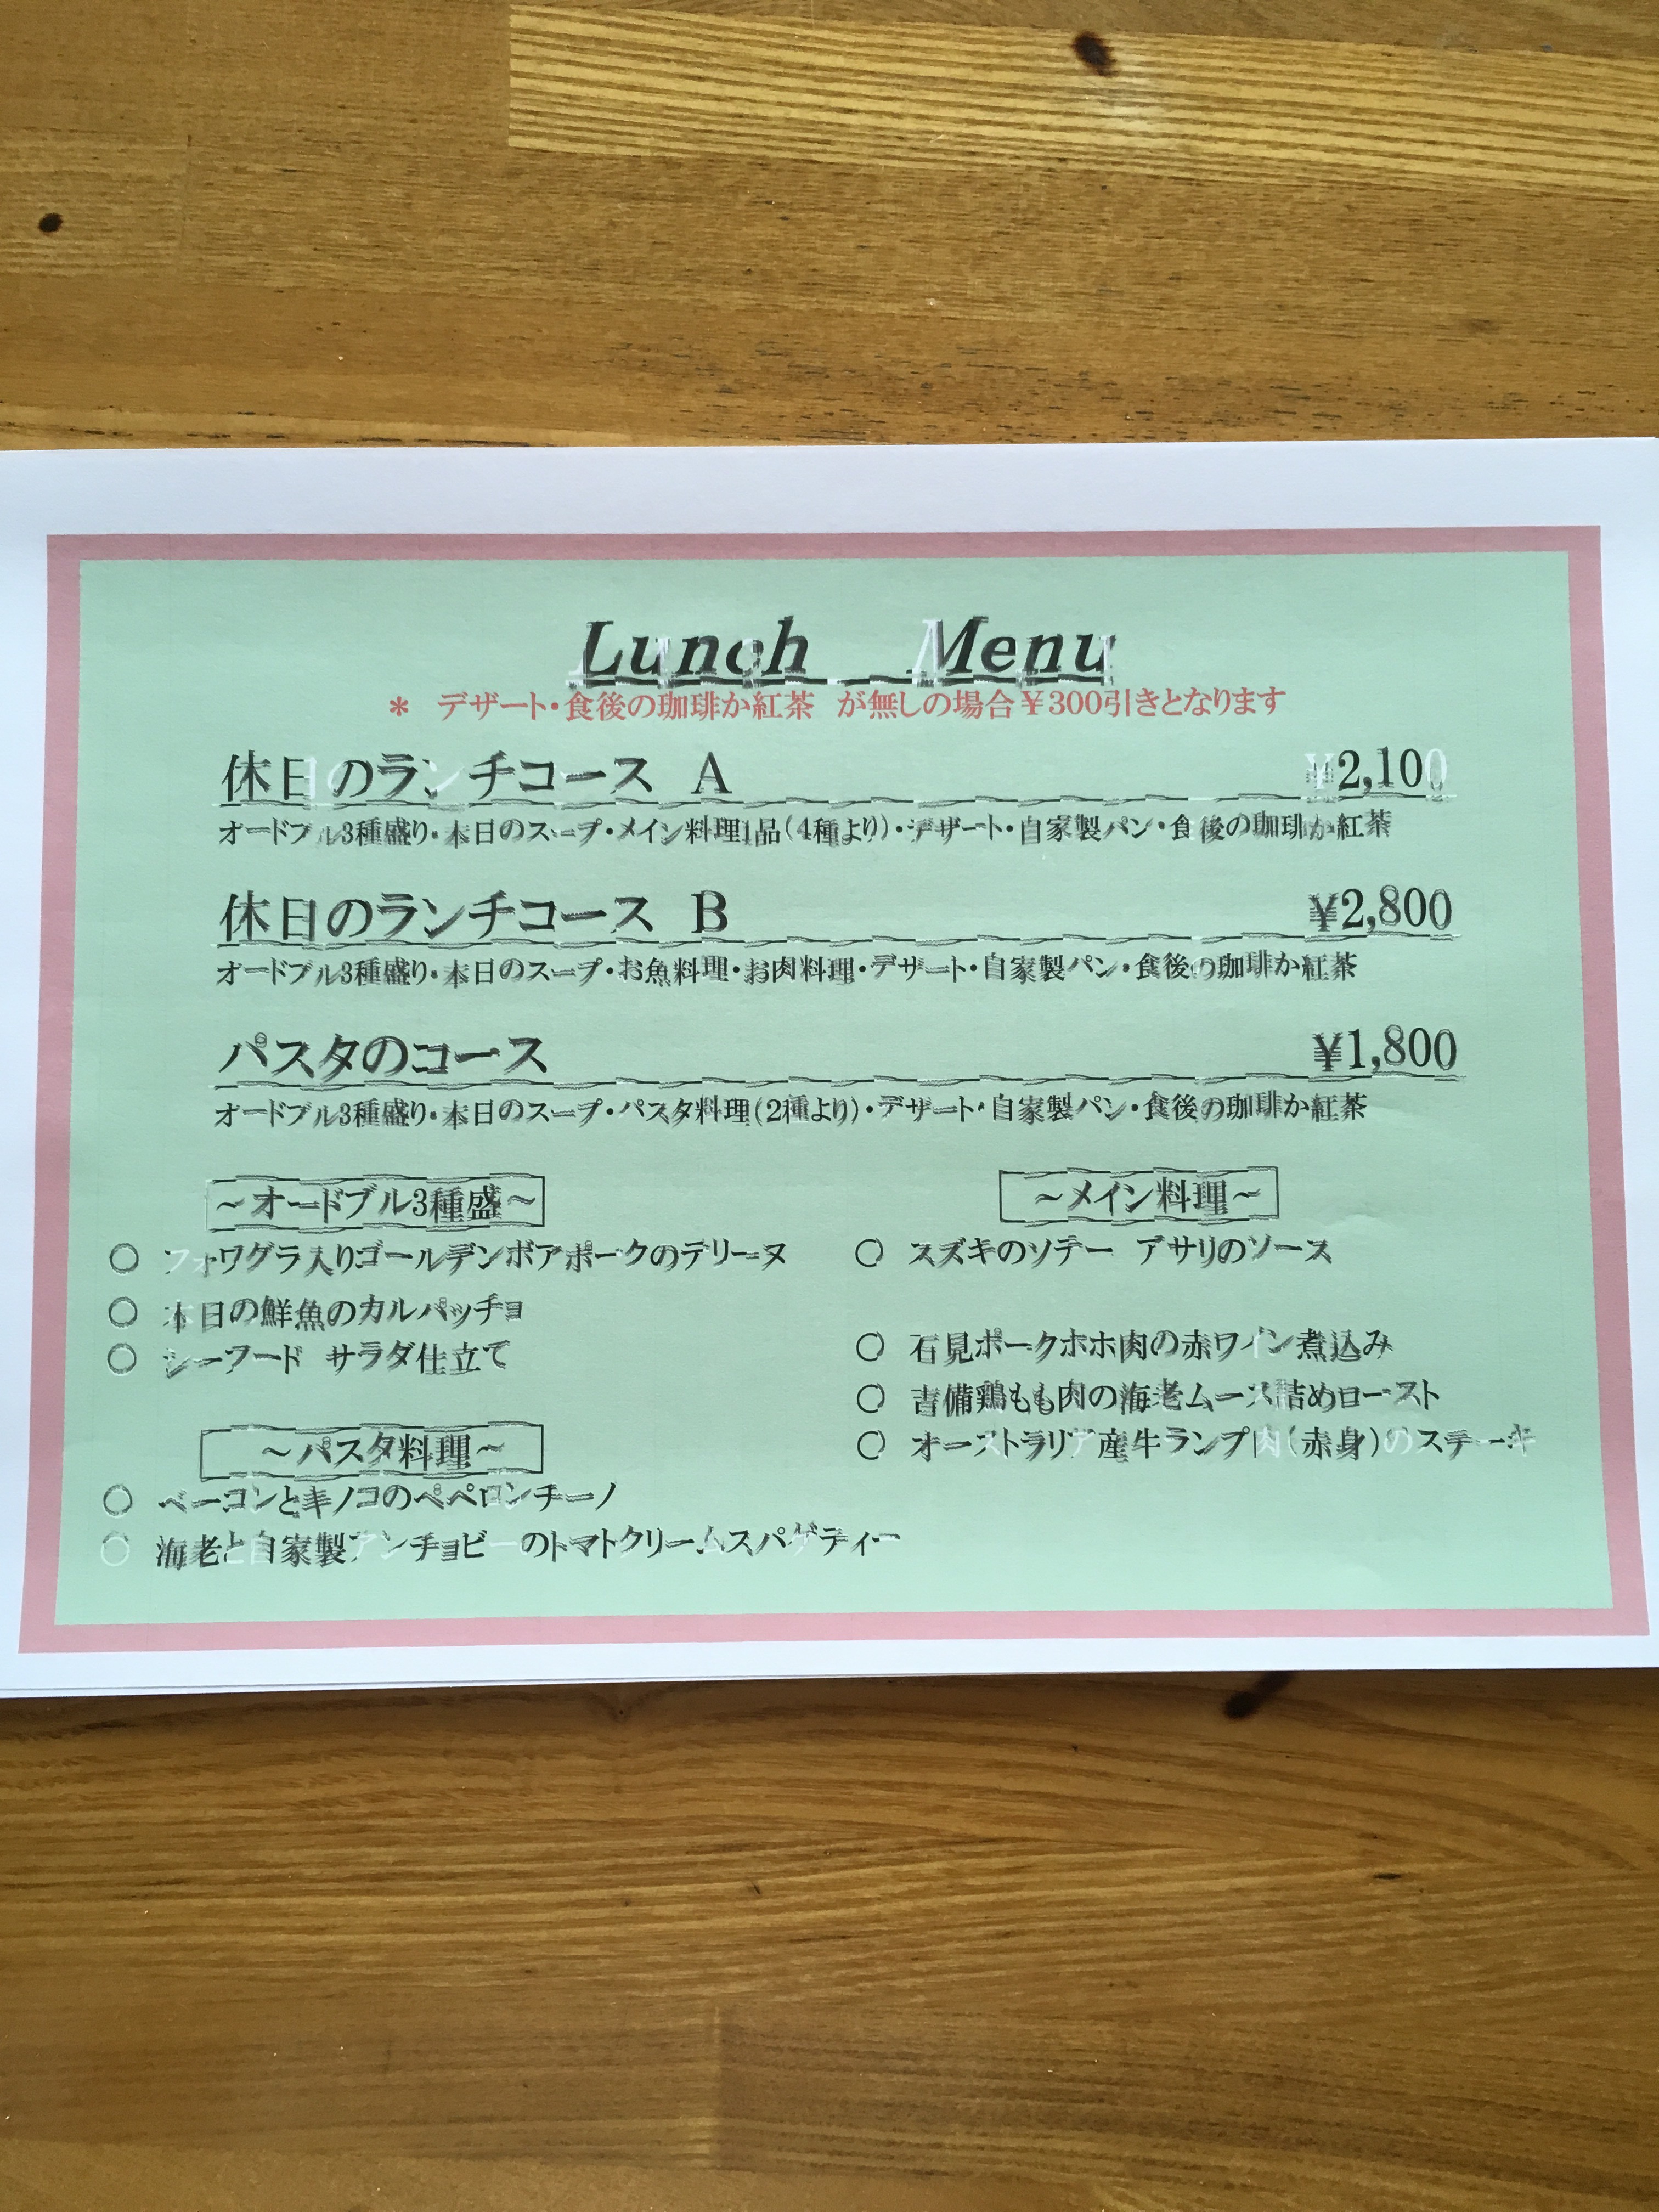 Lunch Menu
＊ デザート・食後の珈琲か紅茶 が無しの場合￥300引きとなります
休日のランチコース A ¥2,100
オードブル3種盛り・本日のスープ・メイン料理1品(4種より)・デザート・自家製パン・食後の珈琲か紅茶
休日のランチコース B ¥2,800
オードブル3種盛り・本日のスープ・お魚料理・お肉料理・デザート・自家製パン・食後の珈琲か紅茶
パスタのコース ¥1,800
オードブル3種盛り・本日のスープ・パスタ料理(2種より)・デザート・自家製パン・食後の珈琲か紅茶
～オードブル3種盛～
○ フォワグラ入りゴールデンボアポークのテリーヌ
○ 本日の鮮魚のカルパッチョ
○ シーフード サラダ仕立て
～パスタ料理～
○ ベーコンとキノコのペペロンチーノ
○ 海老と自家製アンチョビーのトマトクリームスパゲティー
～メイン料理～
○ スズキのソテー アサリのソース
○ 石見ポークホホ肉の赤ワイン煮込み
○ 吉備鶏もも肉の海老ムース詰めロースト
○ オーストラリア産牛ランプ肉(赤身)のステーキ